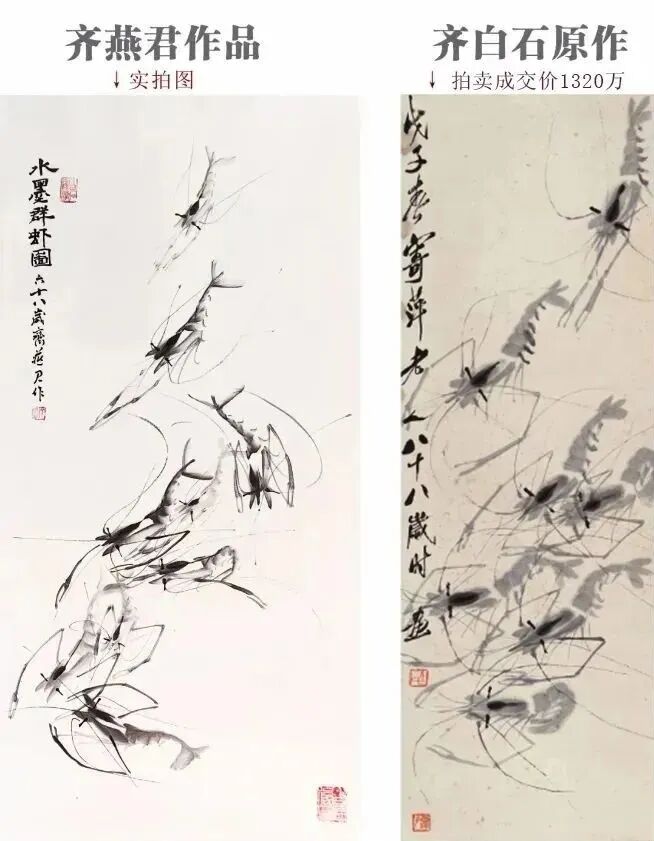 齐燕君作品
↓实拍图
齐白石原作
↓ 拍卖成交价1320万
水墨群虾图
六十八歲齊燕君作
戊子春寄萍老人八十八歲時畫